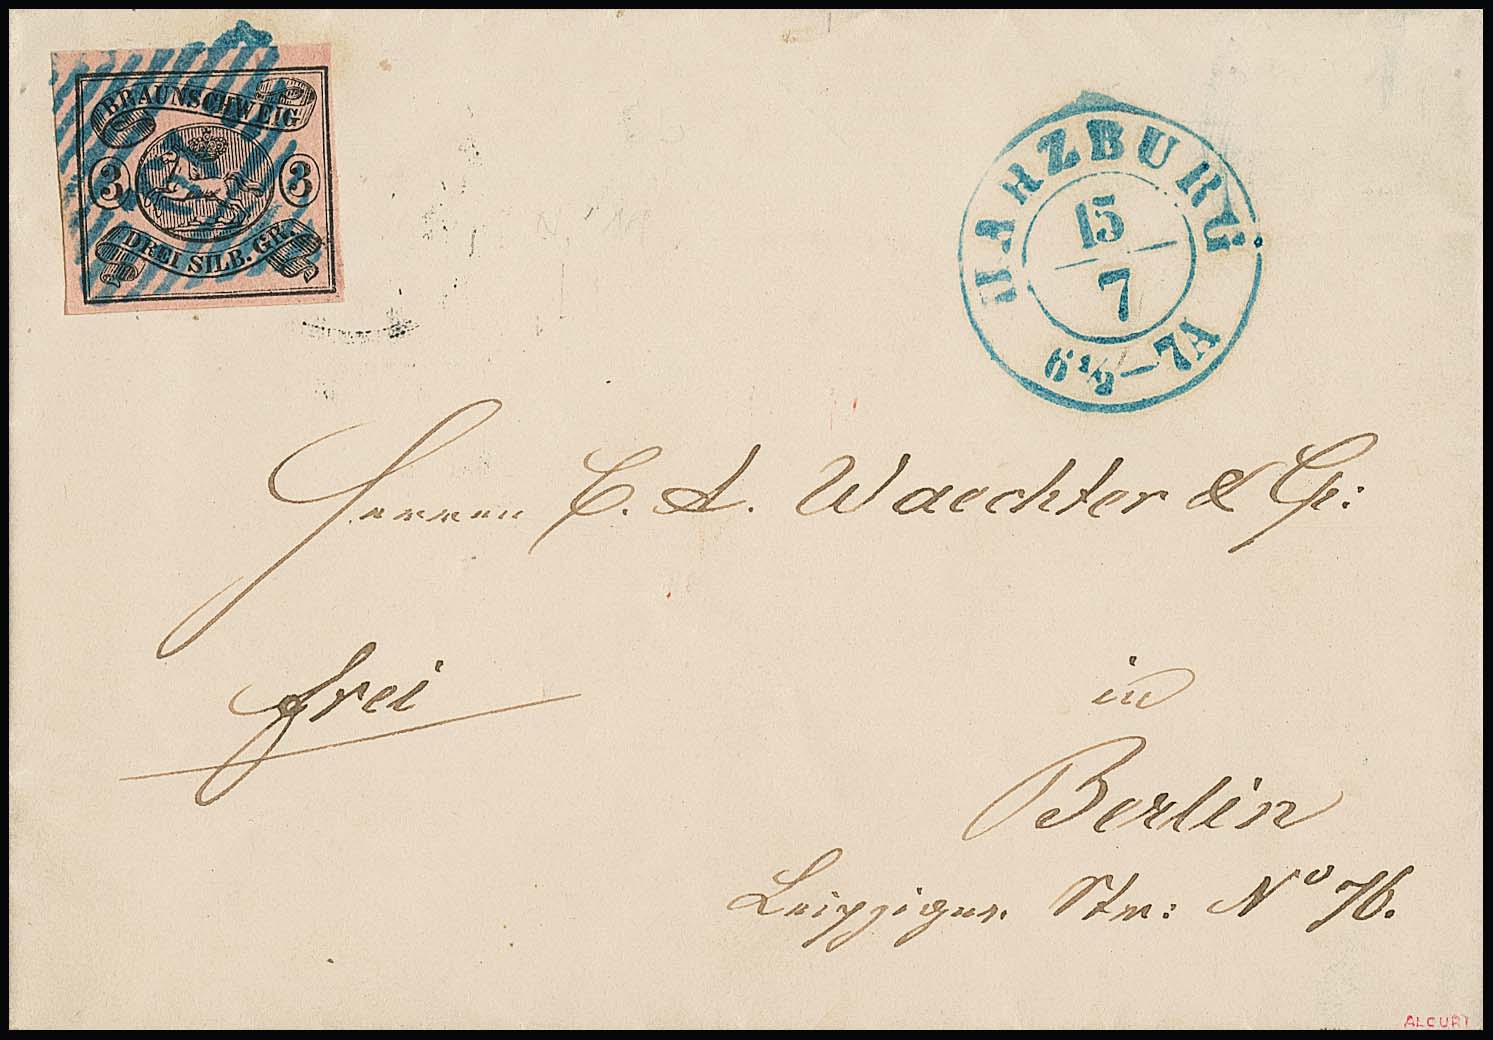 BRAUNSCHWEIG
3 3
DREI SILB. GR.
HARZBURG
15
7
6 1/2 — 7A
Herren C. A. Waechter & Co:
frei
in
Berlin
Leipziger Str: No 76.